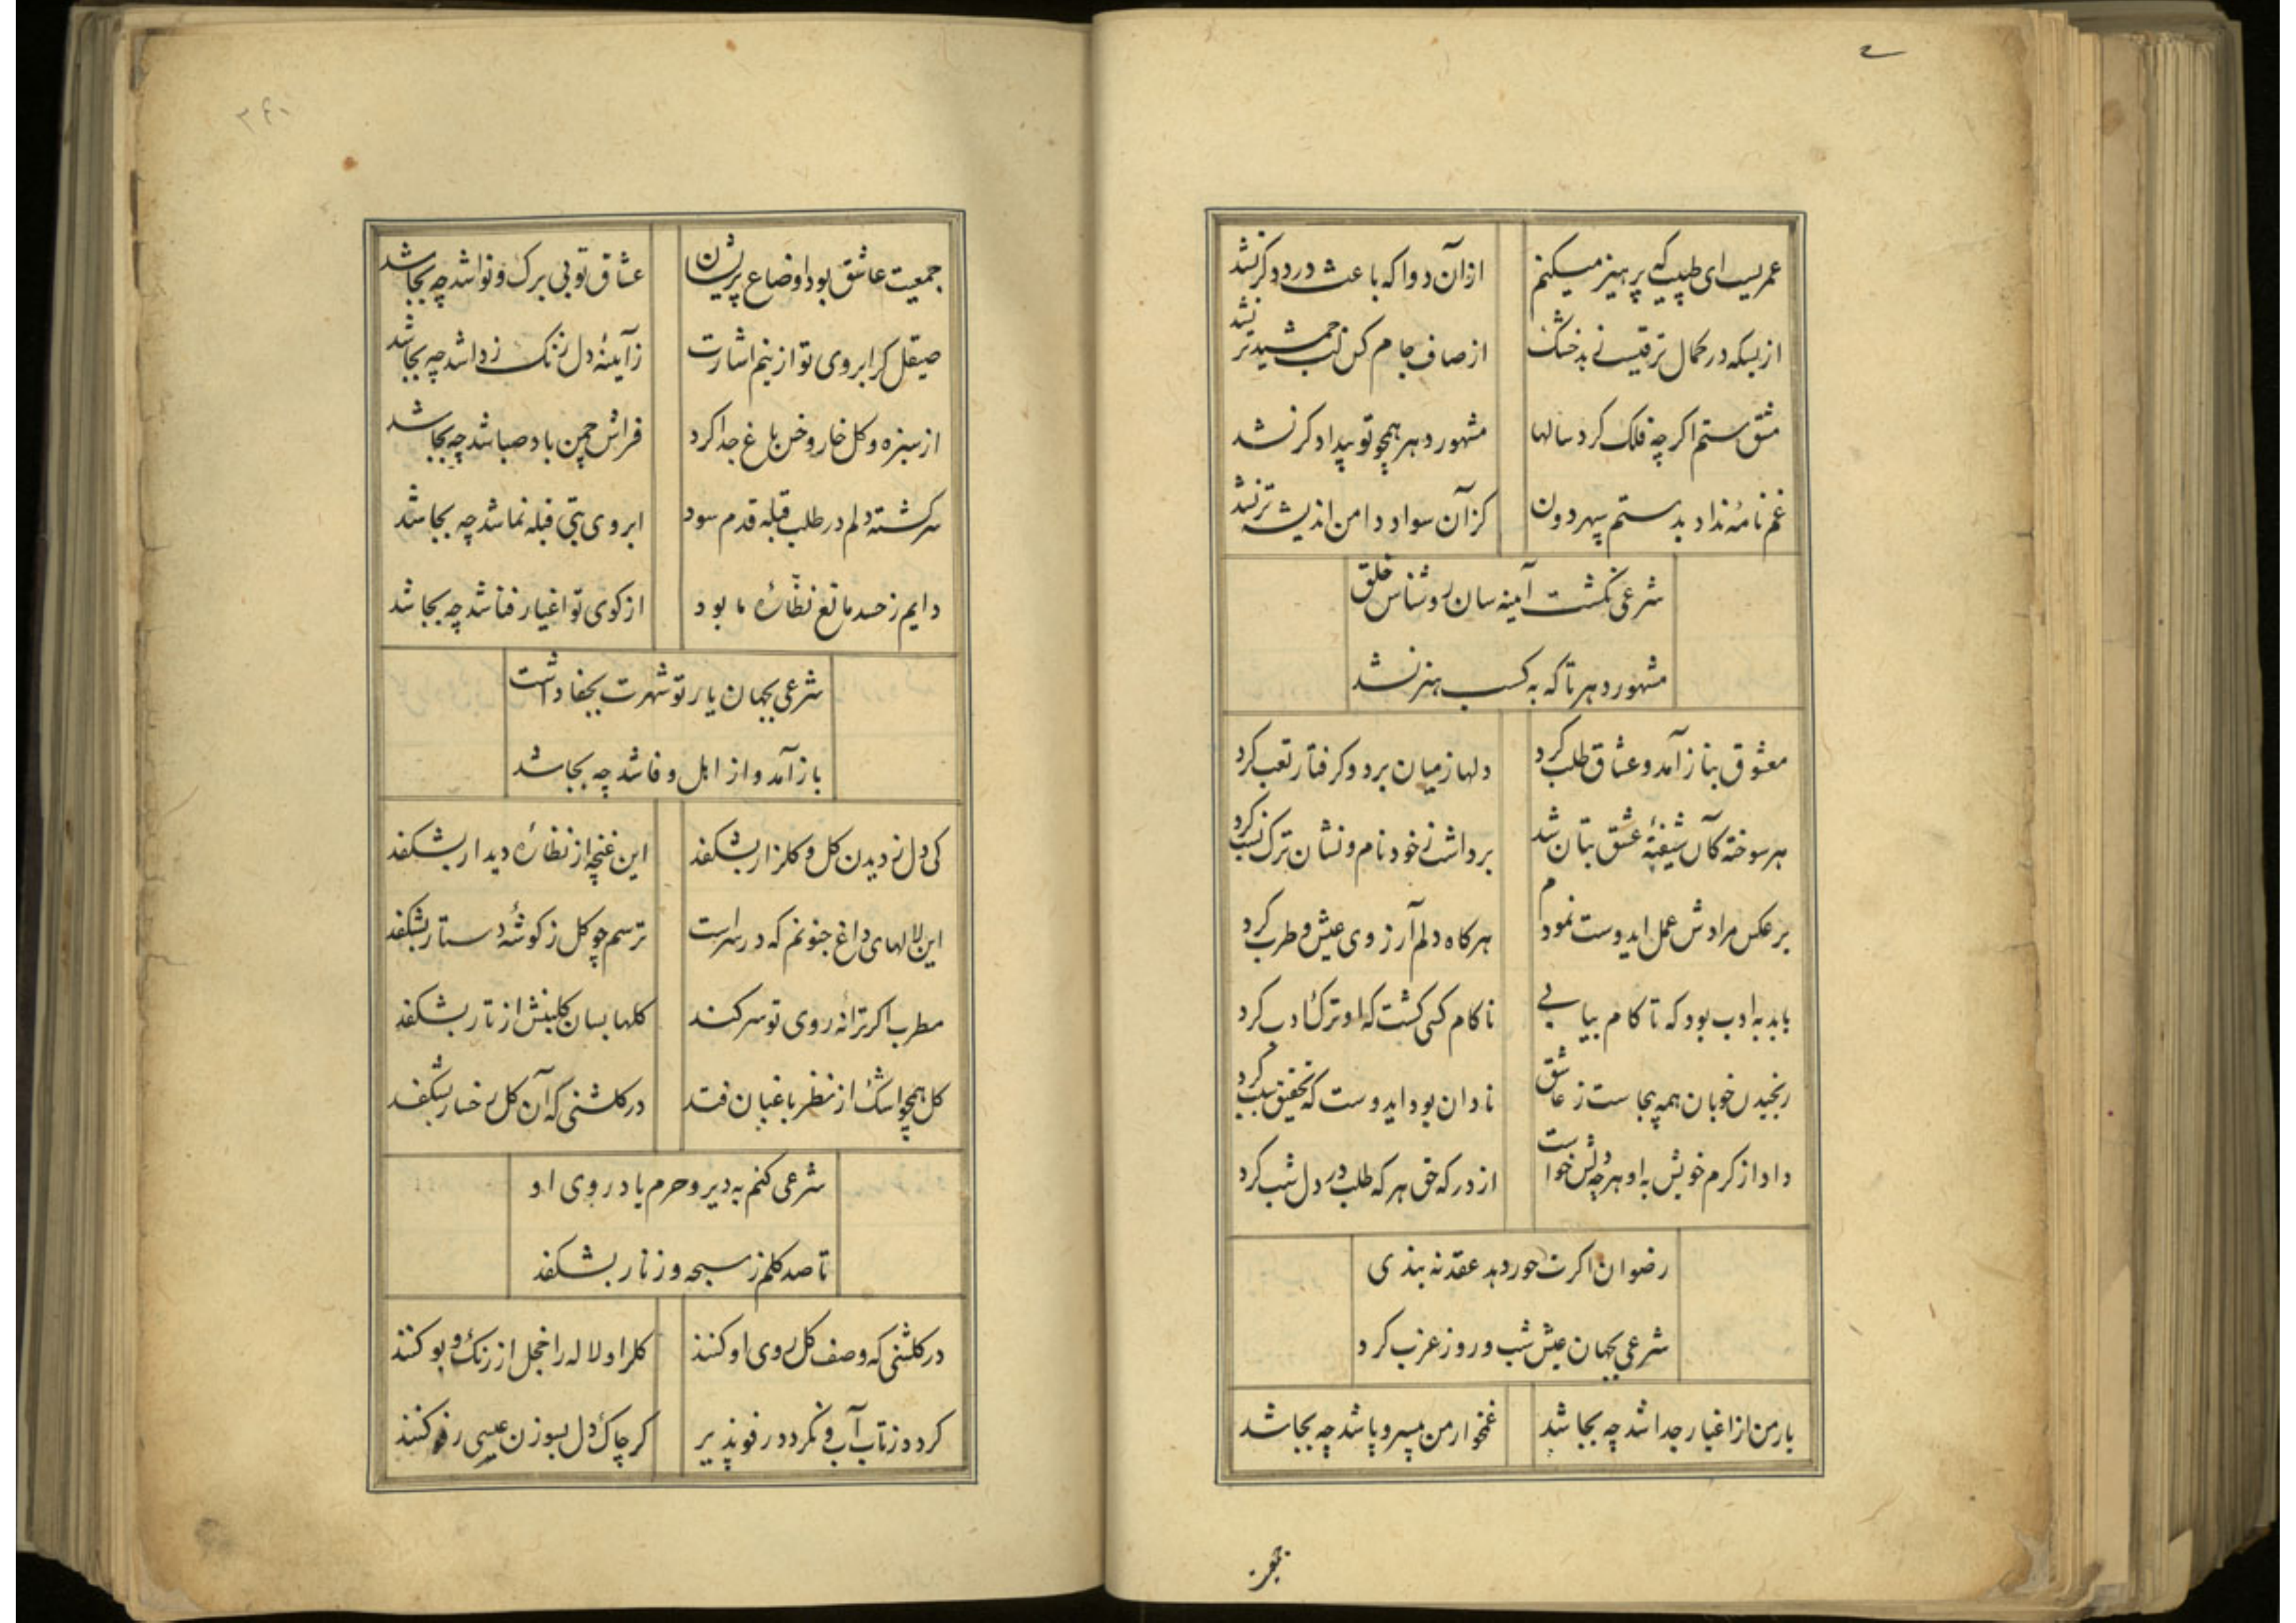 عمریست ای طبیب که پرهیز میکنم ازان دوا که باعث درد دکر نشد
از بسکه در کمال ترقیست نی بد خشک از صاف جام کس لب جمشید تر نشد
مشق ستم اکرچه فلک کرد سالها مشهور دهر همچو تو بیدادکر نشد
غم نامهٔ نداد بدستم سپهر دون کز آن سواد دامن اندیشه تر نشد
شرعی نکشت آینه سان روشناس خلق
مشهور دهر تا که به کسب هنر نشد
معشوق بناز آمد و عشاق طلب کرد دلها ز میان برد و کرفتار تعب کرد
هر سوخته کآن شیفتهٔ عشق بتان شد برداشت ز خود نام و نشان ترک نسب کرد
بر عکس مرادش عمل ایدوست نمودم هرکاه دلم آرزوی عیش و طرب کرد
باید به ادب بود که تا کام بیابی ناکام کسی کشت که او ترک ادب کرد
رنجیدن خوبان همه بیجاست ز عاشق نادان بود ایدوست که تحقیق سبب کرد
داد از کرم خویش به او هرچه دلش خواست از درکه حق هر که طلب در دل شب کرد
رضوان اکرت حور دهد عقد نه بندی
شرعی بجهان عیش شب و روز عزب کرد
یار من از اغیار جدا شد چه بجا شد غمخوار من بیسر و پا شد چه بجا شد
۳۶۰
جمعیت عاشق بود اوضاع پریشان عشاق تو بی برک و نوا شد چه بجا شد
صیقل کر ابروی تو از نیم اشارت ز آیینهٔ دل زنک زدا شد چه بجا شد
از سبزه و کل خار و خس باغ جدا کرد فراش چمن باد صبا شد چه بجا شد
سرکشته دلم در طلب قبله قدم سود ابروی بتی قبله نما شد چه بجا شد
دایم ز حسد مانع نظّارهٔ ما بود از کوی تو اغیار فنا شد چه بجا شد
شرعی بجهان یار تو شهرت بجفا داشت
باز آمد و از اهل وفا شد چه بجا شد
کی دل ز دیدن کل و کلزار بشکفد این غنچه از نظارهٔ دیدار بشکفد
این لالهای داغ جنونم که در سراست ترسم چو کل ز کوشهٔ دستار بشکفد
مطرب اکر ترانه روی تو سر کند کلها بسان کلبنش از تار بشکفد
کل همچو اشک از نظر باغبان فتد در کلشنی که آن کل رخسار بشکفد
شرعی کنم به دیر و حرم یاد روی او
تا صد کلم ز سبحه و زنار بشکفد
در کلشنی که وصف کل روی او کنند کلرا و لاله را خجل از رنک و بو کنند
کردد ز تاب آب و نکردد رفو پذیر کر چاک دل بسوزن عیسی رفو کنند